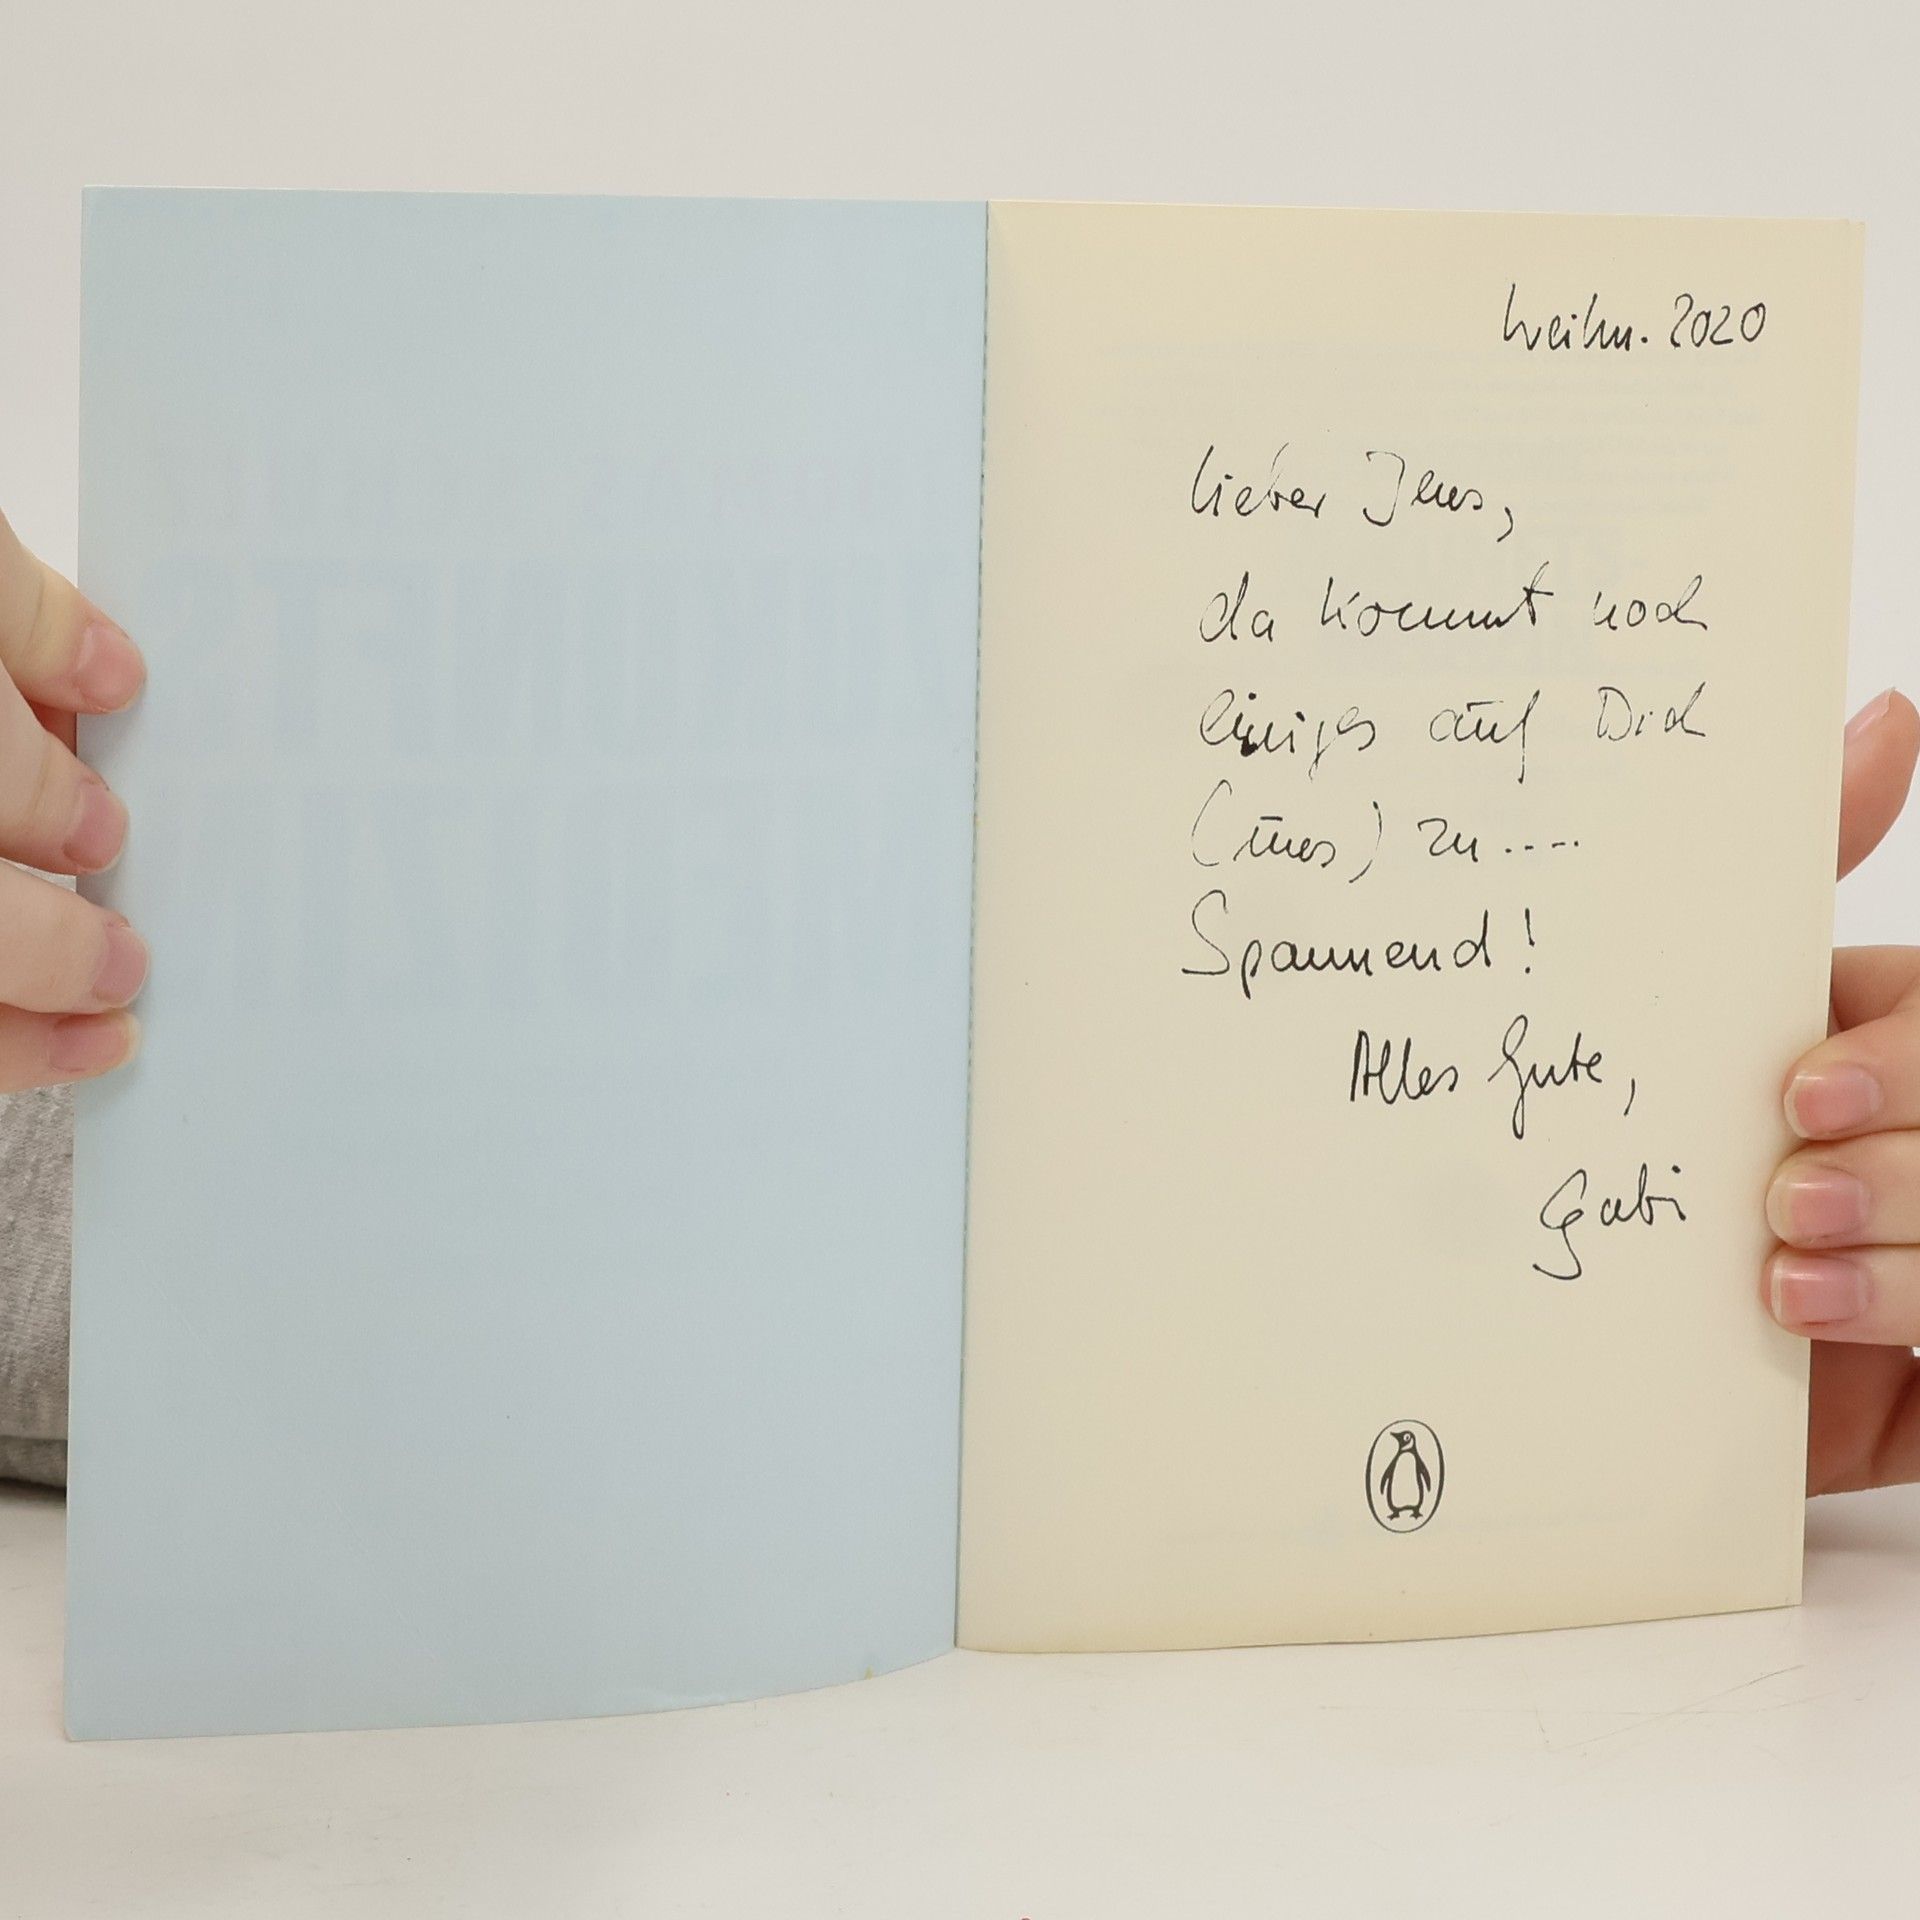 Weihn. 2020
Lieber Jens,
da kommt noch
einiges auf Dich
(uns) zu....
Spannend!
Alles Gute,
Gabi